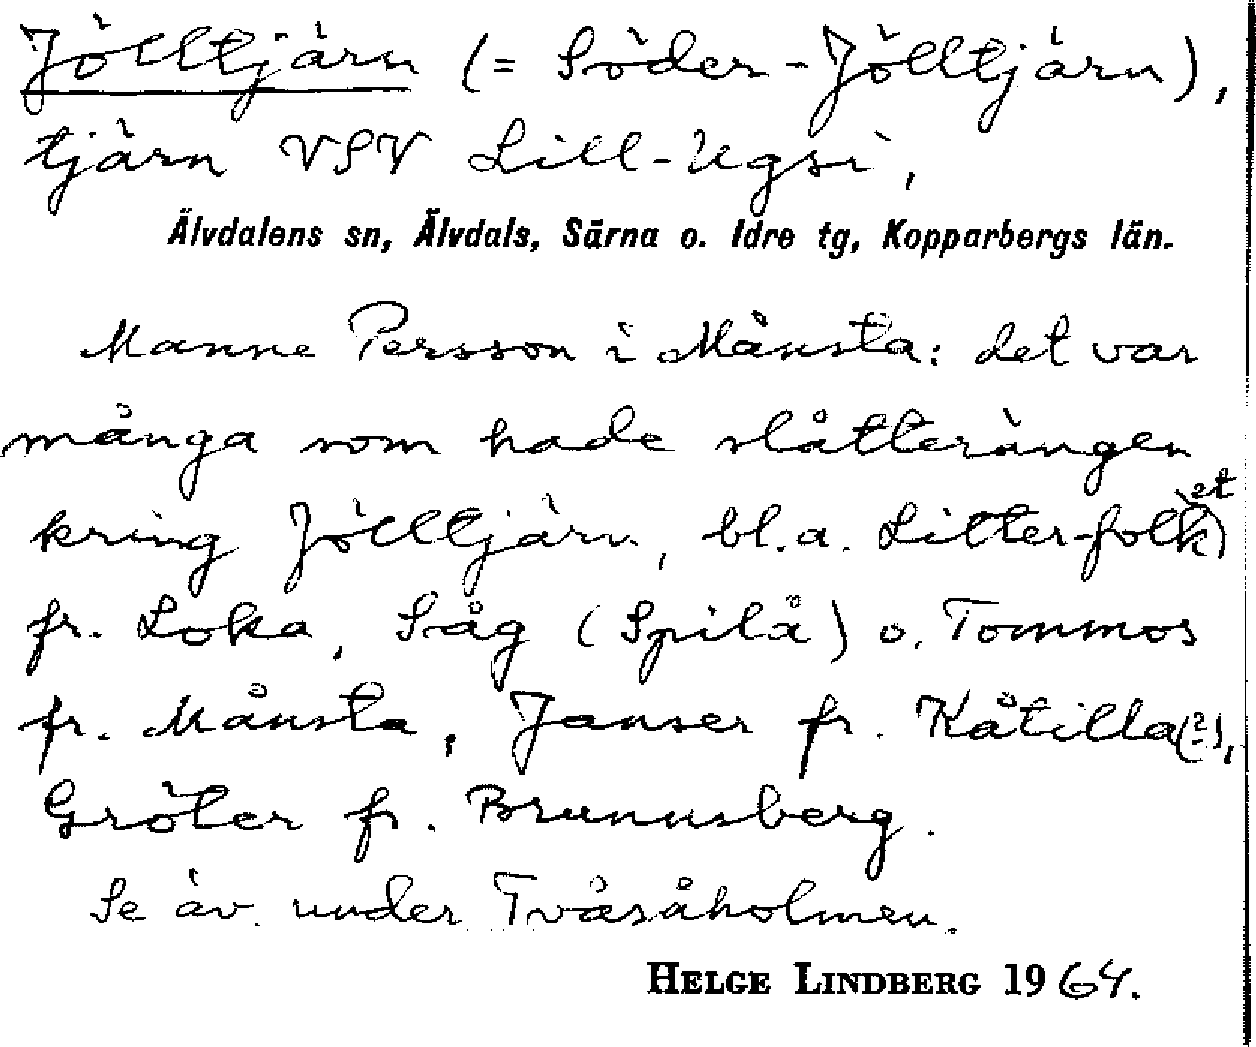 Jölltjärn (= Söder-Jölltjärn),
tjärn VSV Lill-Ugsi,
Älvdalens sn, Älvdals, Särna o. Idre tg, Kopparbergs län.
Manne Persson i Månsta: det var
många som hade slåtterängen
kring Jölltjärn, bl.a. Litter-folk(et)
fr. Loka, Såg (Spilå) o. Tommos
fr. Månsta, Janser fr. Kåtilla(?),
Gröter fr. Brunnsberg.
Se äv. under Tvåsåholmen.
HELGE LINDBERG 1964.